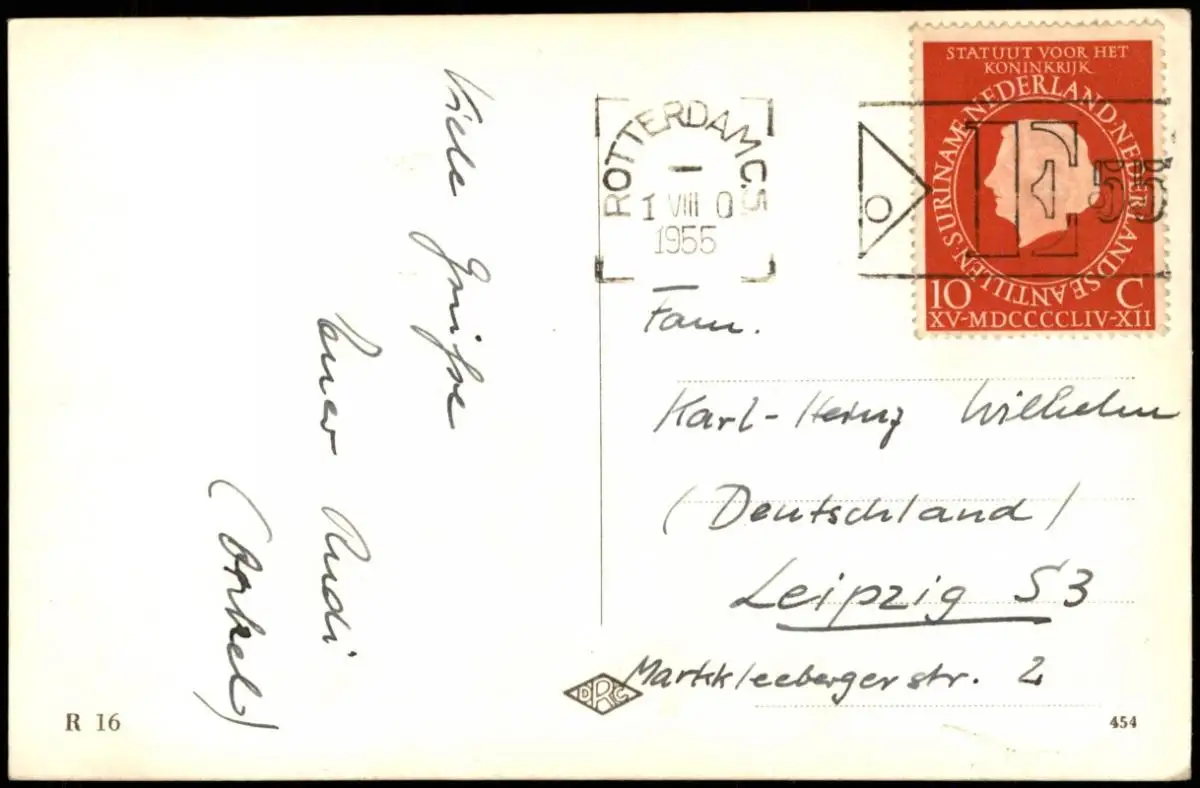 Viele Grüße
Euer Rudi
(Onkel)
ROTTERDAM C.S
1 VIII 0
1955
E 55
STATUUT VOOR HET
KONINKRIJK
NEDERLAND·NEDERLANDSE ANTILLEN·SURINAME·
10 C
XV-MDCCCCLIV-XII
Fam.
Karl-Heinz Wilhelm
(Deutschland)
Leipzig S3
Markkleebergerstr. 2
DRC
R 16
454